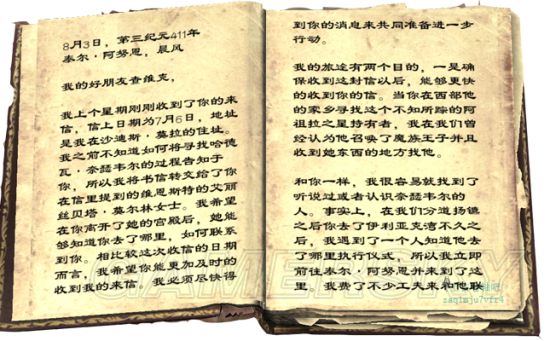 8月3日，第三纪元411年
泰尔·阿努恩，晨风
我的好朋友查维克，
我上个星期刚刚收到了你的来
信，信上日期为7月6日，地址
是我在沙迪斯·莫拉的住址。
我之前不知道如何将寻找哈德
瓦·奈瑟韦尔的过程告知于
你，所以我将书信转交给了你
在信里提到的维恩斯特的艾丽
丝贝塔·莫尔林女士。我希望
在你离开了她的宫殿后，她能
够知道你去了哪里，如何联系
到你。相比较这次收信的日期
而言，我希望你能更加及时的
收到我的来信。我必须尽快得
到你的消息来共同准备进一步
行动。
我的旅途有两个目的，一是确
保收到这封信以后，能够更快
的收到你的信。当你在西部他
的家乡寻找这个不知所踪的阿
祖拉之星持有者，我在我们曾
经认为他召唤了魔族王子并且
收到她东西的地方找他。
和你一样，我很容易就找到了
听说过或者认识奈瑟韦尔的
人。事实上，在我们分道扬镳
之后你去了伊利亚克湾不久之
后，我遇到了一个人知道他去
了哪里执行仪式，所以我立即
前往泰尔·阿努恩并来到了这
里。我费了不少工夫来和他联
GAMERSKY
zaqimju7vfr4